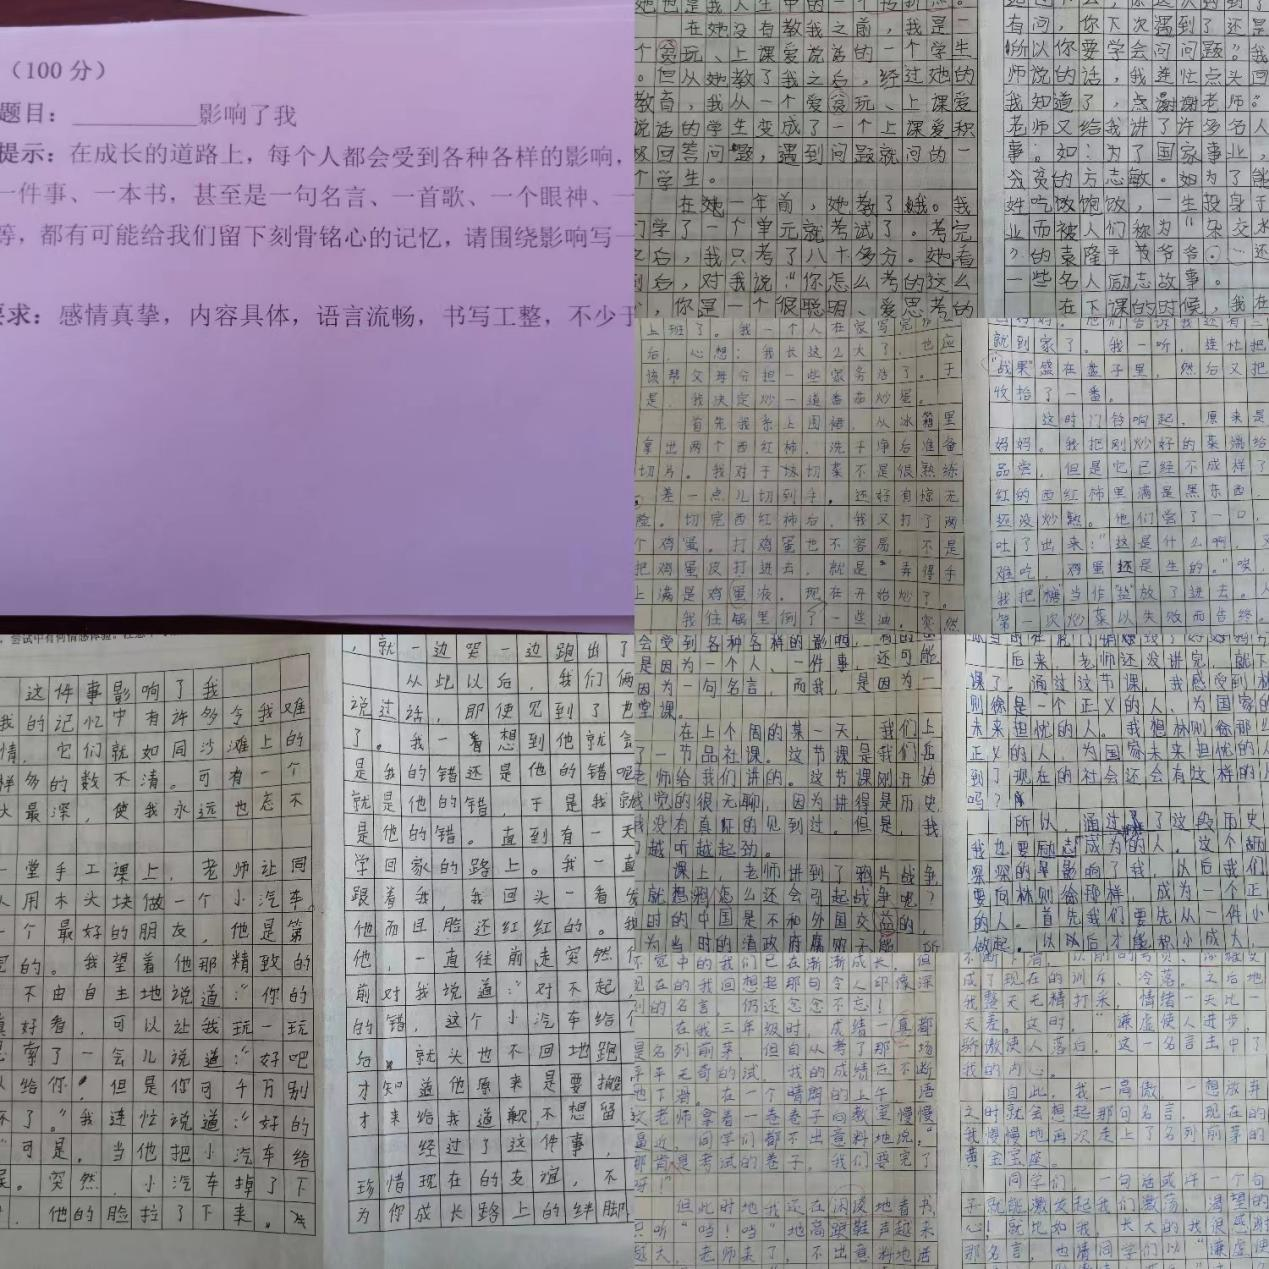 （100 分）
题目：__________影响了我
提示：在成长的道路上，每个人都会受到各种各样的影响，
一件事、一本书，甚至是一句名言、一首歌、一个眼神、一
等，都有可能给我们留下刻骨铭心的记忆，请围绕影响写一
要求：感情真挚，内容具体，语言流畅，书写工整，不少于
她也是我人生中的一个转折点。
在她没有教我之前，我是一
个贪玩、上课爱说话的一个学生
。但从她教了我之后，经过她的
教育，我从一个爱贪玩、上课爱
说话的学生变成了一个上课爱积
极回答问题，遇到问题就问的一
个学生。
在她一年前，她教了我。我
们学了一个单元就考试了。考完
之后，我只考了八十多分。她看
到后，对我说："你怎么考的这么
，你是一个很聪明、爱思考的
有问，你下次遇到了还是
所以你要学会问问题？我
师说的话，我连忙点头回
我知道了，点谢谢老师。
老师又给我讲了许多名人
事。如：为了国家事业，
分贫的方志敏。如为了能
姓吃饭饱饭，一生投身于
业而被人们称为"杂交水
的袁隆平黄爷爷。…还
一些名人励志故事。
在下课的时候，我在
上班了。我一个人在家写完
后，心想：我长这么大了，也应
该帮父母分担一些家务活了。于
是，我决定炒一道番茄炒蛋。
首先我系上围裙，从冰箱里
拿出两个西红柿，洗干净后准备
切片。我对于块切菜不是很熟练
，差一点儿切到手，还好有惊无
险。切完西红柿后，我又打了两
个鸡蛋。打鸡蛋也不容易，不是
把鸡蛋皮打进去，就是弄得手
上满是鸡蛋液。现在开始炒了。
我往锅里倒了一些油，突然
就到家了。我一听，连忙把
"战果"盛在盘子里，然后又把
收拾了一番。
这时门铃响起，原来是
妈妈。我把刚炒好的菜端给
品尝，但是它已经不成样了
红的西红柿里满是黑东西，
还没炒熟。他们尝了一口，
吐了出来："这是什么啊，又
难吃，鸡蛋还是生的。"唉，
我把"糖"当作"盐"放了进去。人
第一次炒菜以失败而告终
这件事影响了我
我的记忆中有许多令我难
情，它们就如同沙滩上的
样多的数不清。可有一个
大最深，使我永远也忘不
一堂手工课上，老师让同
人用木头块做一个小汽车。
一个最好的朋友，他是第
完的。我望着他那精致的
不由自主地说道："你的
真好看，可以让我玩一玩
思索了一会儿说道："好吧
以给你，但是你可千万别
坏了。"我连忙说道："好的
"可是，当他把小汽车给
突然，小汽车掉了下
，他的脸拉了下来。
，就一边哭一边跑出了
从此以后，我们俩
说过话，即使见到了也
了。我一看想到他就会
是我的错还是他的错呢
就是他的错，于是我就
是他的错。直到有一天
学回家的路上。我一直
跟着我，我回头一看发
他而且脸还红红的。我
他，一直往前走突然
前对我说道："对不起，
的错，这个小汽车给你
后，就头也不回地跑
才知道他原来是要搬
才来给我道歉，不想留
经过了这件事，
珍惜现在的友谊，不
为你成长路上的绊脚
会受到各种各样的影响，有的
是因为一个人、一件事，还可能
因为一句名言，而我，是因为一
堂课。
在上个周的某一天，我们上
了一节品社课。这节课是我们岳
老师给我们讲的。这节课刚开始
觉的很无聊，因为讲得是历史
我没有真正的见到过。但是，我
越听越起劲。
课上，老师讲到了鸦片战争
就想到怎么还会引起战争呢？
时的中国是不和外国交益的，
为当时的清政府腐败无能，所
后来，老师还没讲完，就下
课了。通过这节课，我感受到林
则徐是一个正义的人、为国家的
未来担忧的人。我想林则徐那么
正义的人，为国家未来担忧的人
到了现在的社会还会有这样的人
吗？
所以，通过了这段历史
我也要励志成为的人。这个
深深的早影响了我，以后我们
要向林则徐那样，成为一个正
的人。首先我们要先从一件小
做起。以以后才能积小成大，
不觉中的我们已在渐渐成长，但
现在的我回想起那句令人印像深
刻的名言，仍还念念不忘！
在我三年级时，成绩一直都
是名列前茅，但自从考了那一场
平平无奇的试，我的成绩在不断
地下滑。在一个晴朗的上午，语
文老师拿着一卷卷子向教室慢慢
逼近，同学们都不出意料地说，"
那肯是考试的卷子，我们要完了
呀！"
但此时地我还在闲谈地看书，
只听"嘡！嘡！"地高跟鞋声越来
越大，老师来了，不出意料地居
成了现在的训斥、冷落。之后地
我整天无精打采，情绪一天比一
天差。这时，"谦虚使人进步，
骄傲使人落后。"这一名言击中了
我的内心。
自此，我一高傲，一想放弃
之时就会想起那句名言，现在的
我慢慢地再次走上了名列前茅的
黄金宝座。
同学们，一句话或许一个句
子就能激发起我们激荡、渴望的
心！就比如我，长大的我很感谢
那名言，也请同学们以"谦虚使